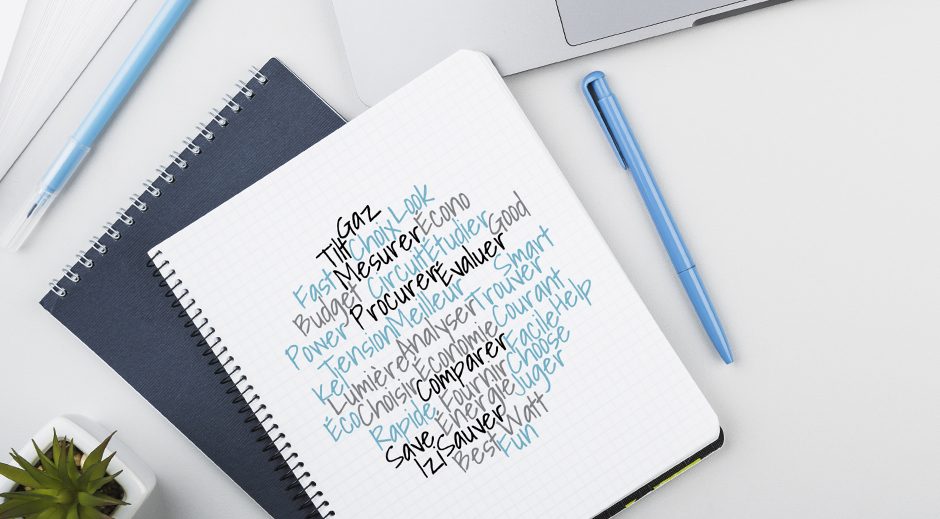 Gaz
Tilt Choix Look
Mesurer Écono
Fast Circuit Étudier Good
Budget Procurer Évaluer
Power Meilleur Smart
Tension Analyser Trouver
Kel Lumière Économie Courant
Éco Choisir Comparer Facile Help
Rapide Fournir Choose
Save Énergie Juger
Izi Sauver Watt
Best Fun